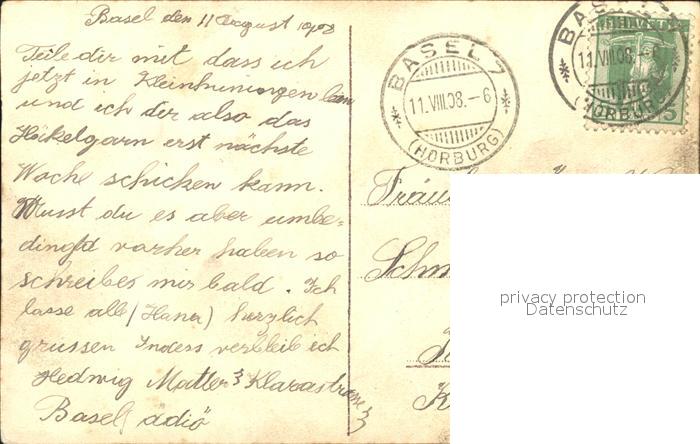 Basel den 11 August 1908
Teile dir mit dass ich
jetzt in Kleinhüningen bin
und ich dir also das
Häkelgarn erst nächste
Woche schicken kann.
Musst du es aber umbe=
dingt vorher haben so
schreibe mir bald. Ich
lasse alle (Haner) herzlich
grussen Indess verbleib ich
Hedwig Matter Klarastrasse 3
Basel adiö
BASEL 7
11.VIII.08.-6
(HORBURG)
BASEL 7
11.VIII.08.-6
(HORBURG)
HELVETIA
5
privacy protection
Datenschutz